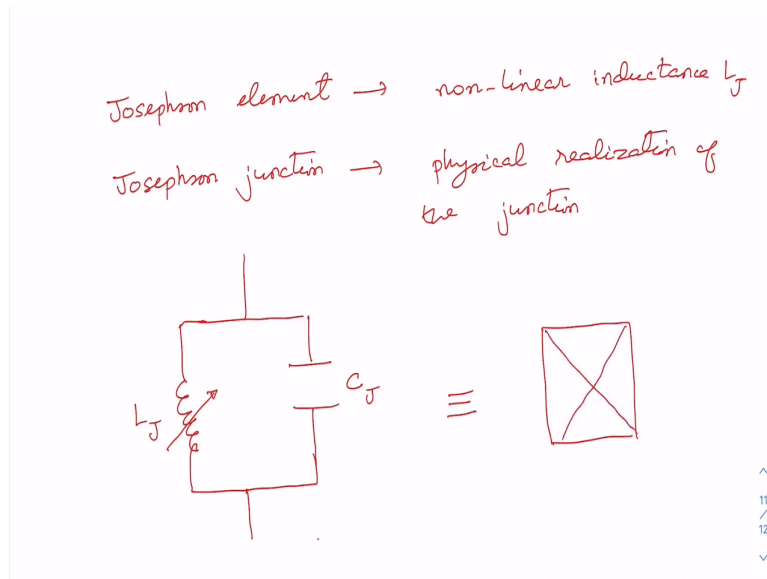 Josephson element → non-linear inductance L_J
Josephson junction → physical realization of
the junction
L_J
C_J
≡
11
/
12